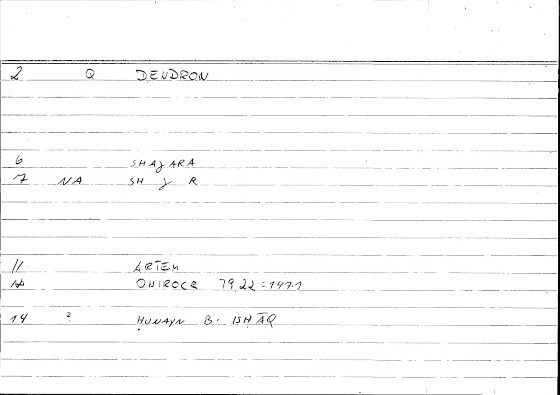 2 Q DENDRON
6 SHAJARA
7 NA SH J R
11 ARTEM
ONIROCR 79,22 = 147,1
14 ? ḤUNAYN B. ISḤĀQ